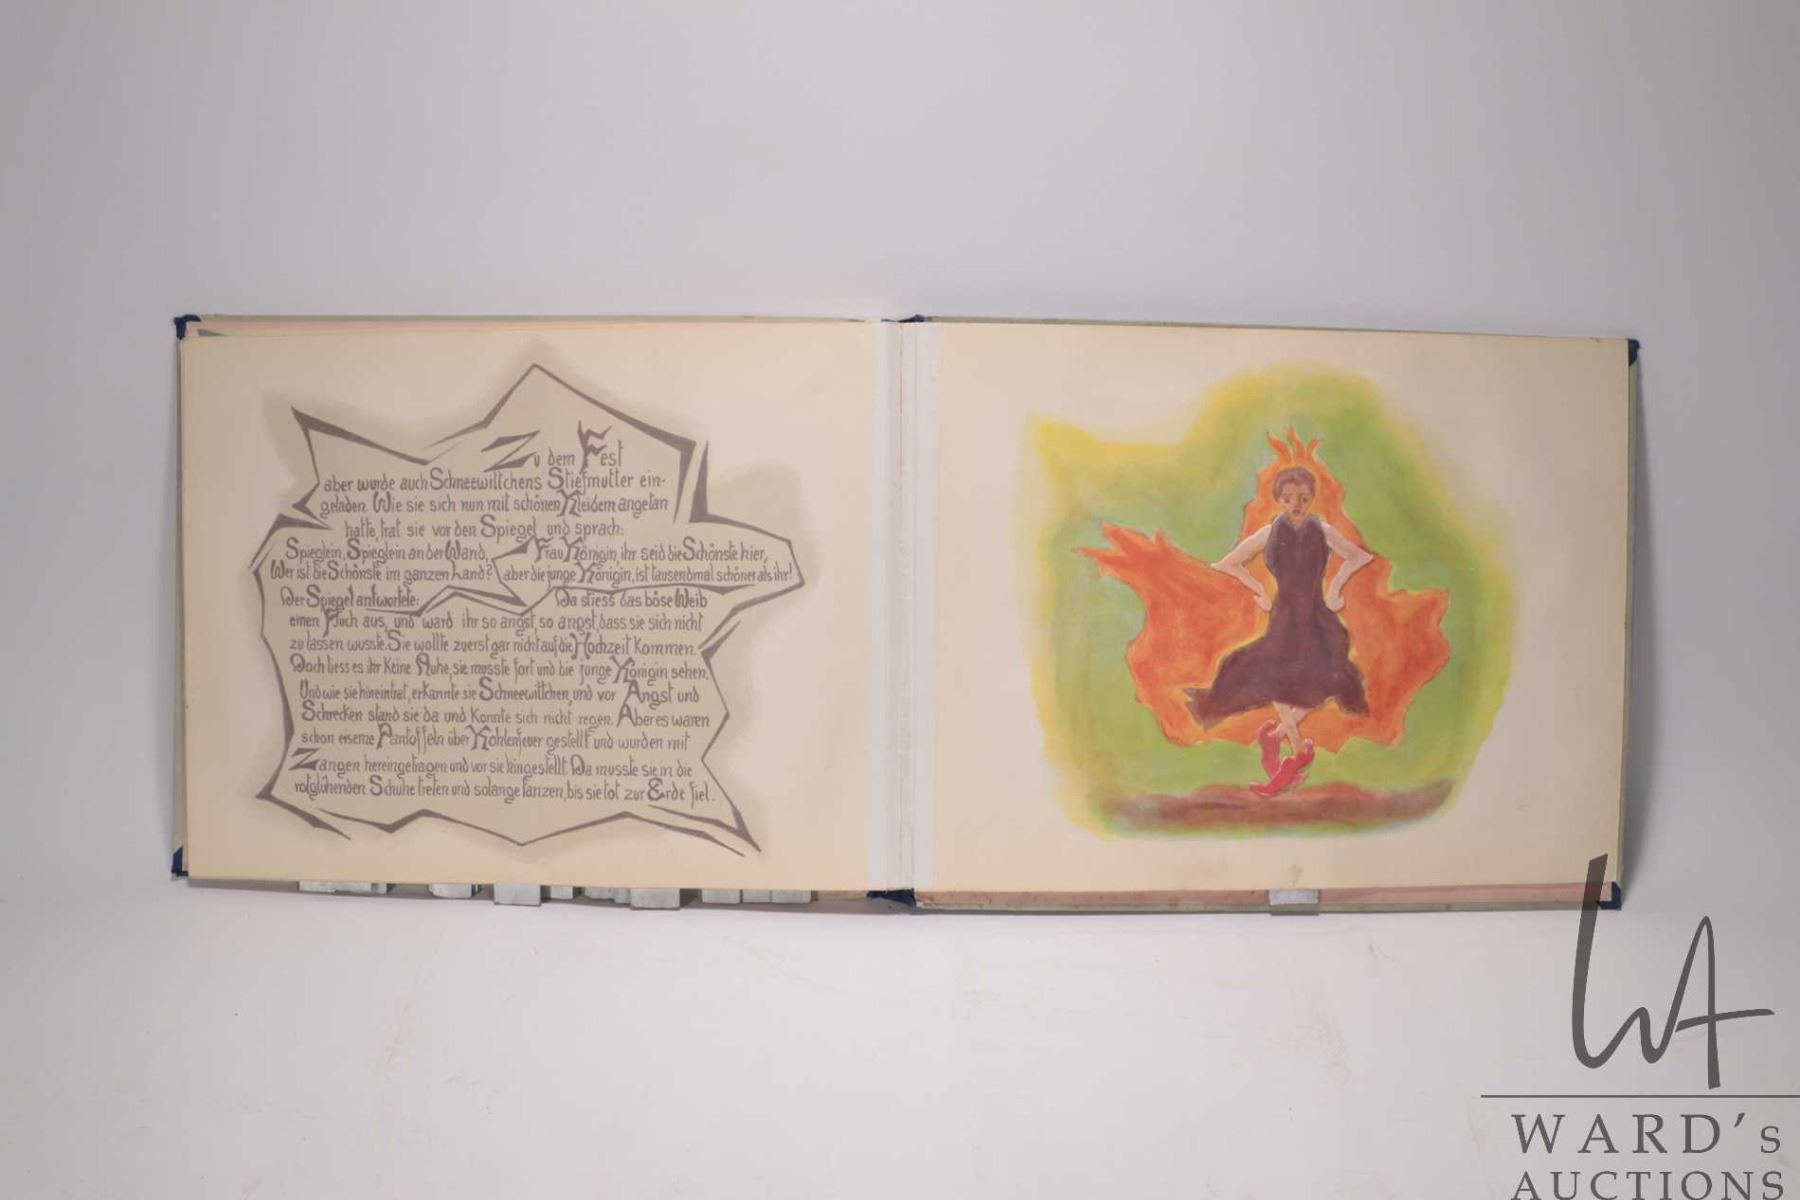 Zu dem Fest
aber wurde auch Schneewittchens Stiefmutter ein-
geladen. Wie sie sich nun mit schönen Kleidern angetan
hatte, trat sie vor den Spiegel und sprach:
Spieglein, Spieglein an der Wand,
Wer ist die Schönste im ganzen Land?
Der Spiegel antwortete:
Frau Königin, ihr seid die Schönste hier,
aber die junge Königin, ist tausendmal schöner als ihr!
Da stiess das böse Weib
einen Fluch aus, und ward ihr so angst, so angst, dass sie sich nicht
zu lassen wusste. Sie wollte zuerst gar nicht auf die Hochzeit kommen.
Doch liess es ihr keine Ruhe, sie musste fort und die junge Königin sehen.
Und wie sie hineintrat, erkannte sie Schneewittchen, und vor Angst und
Schrecken stand sie da und konnte sich nicht regen. Aber es waren
schon eiserne Pantoffeln über Kohlenfeuer gestellt und wurden mit
Zangen hereingetragen und vor sie hingestellt. Da musste sie in die
rotglühenden Schuhe treten und solange tanzen, bis sie tot zur Erde fiel.
WA
WARD's
AUCTIONS